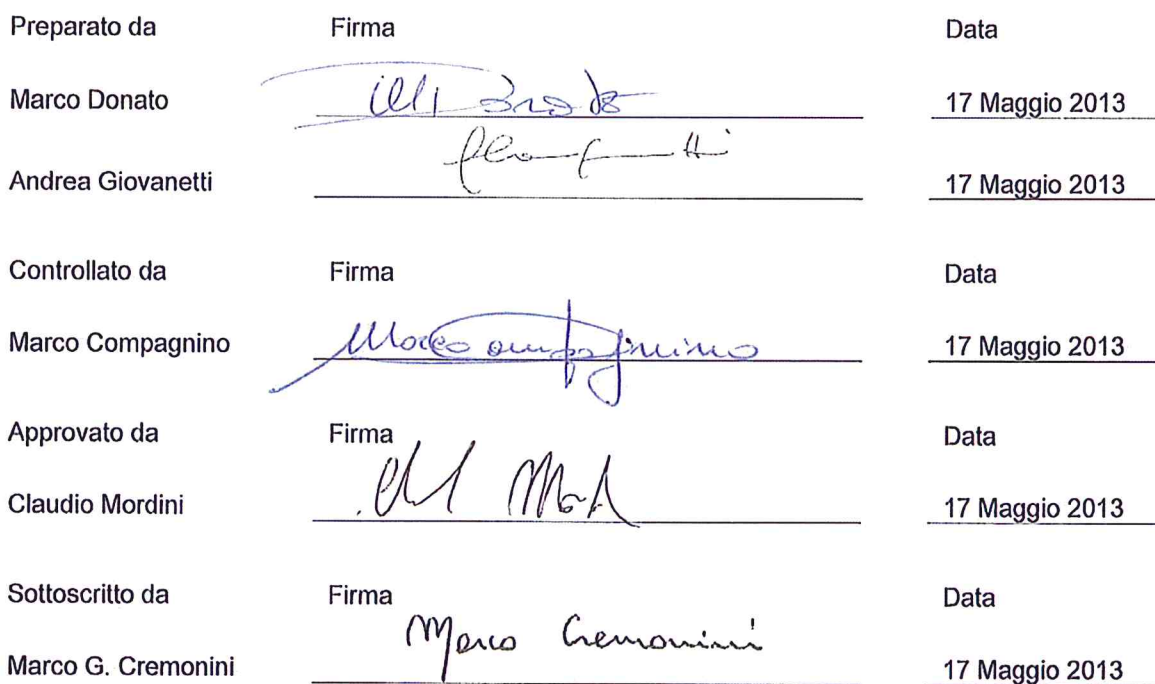 Preparato da Firma Data
Marco Donato 17 Maggio 2013
Andrea Giovanetti 17 Maggio 2013
Controllato da Firma Data
Marco Compagnino Marco Compagnino 17 Maggio 2013
Approvato da Firma Data
Claudio Mordini 17 Maggio 2013
Sottoscritto da Firma Data
Marco G. Cremonini Marco Cremonini 17 Maggio 2013